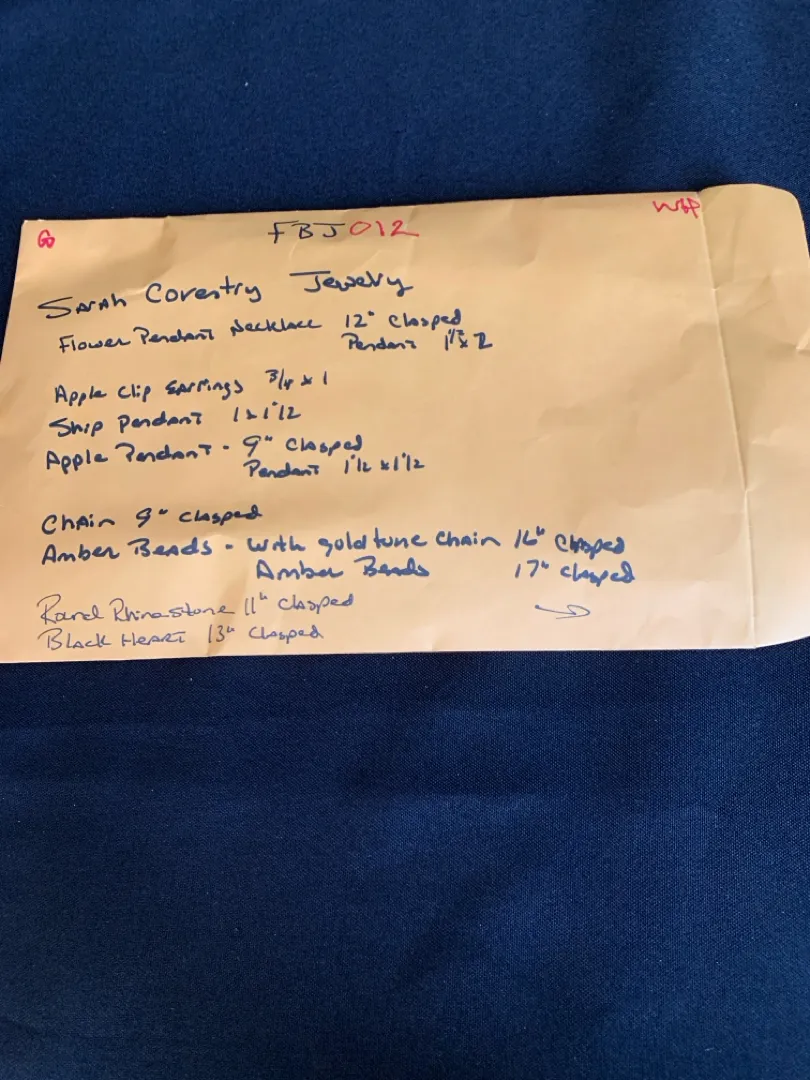 Go FBJ012 WBP
Sarah Coventry Jewelry
Flower Pendant Necklace 12" Clasped
Pendant 1 1/2 x 2
Apple Clip Earrings 3/4 x 1
Ship Pendant 1 x 1 1/2
Apple Pendant - 9" Clasped
Pendant 1 1/2 x 1 1/2
Chain 9" clasped
Amber Beads - with goldtune chain 16" Clasped
Amber Beads 17" clasped
Round Rhinestone 11" Clasped
Black Heart 13" Clasped